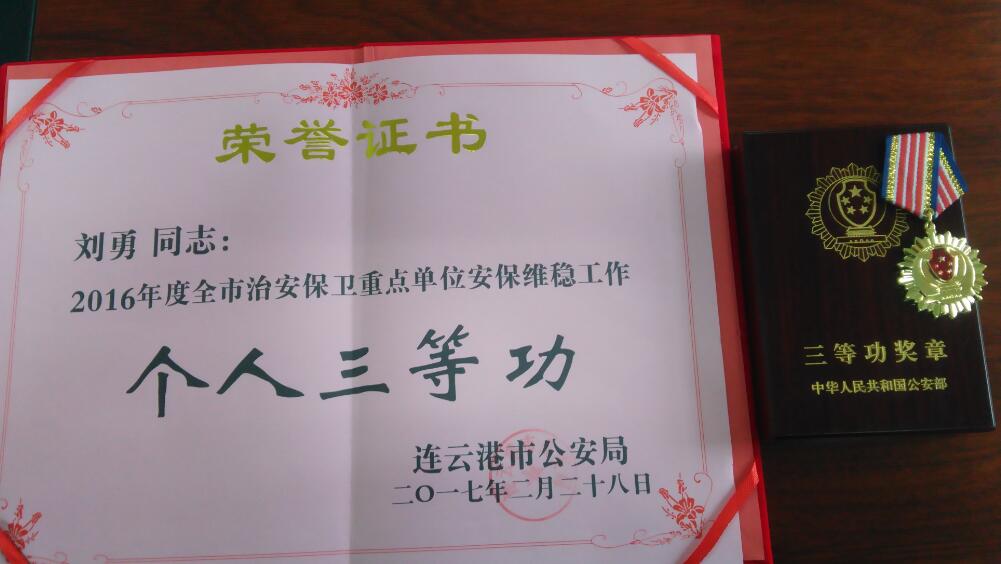 荣誉证书
刘勇 同志：
2016年度全市治安保卫重点单位安保维稳工作
个人三等功
连云港市公安局
二〇一七年二月二十八日
三等功奖章
中华人民共和国公安部